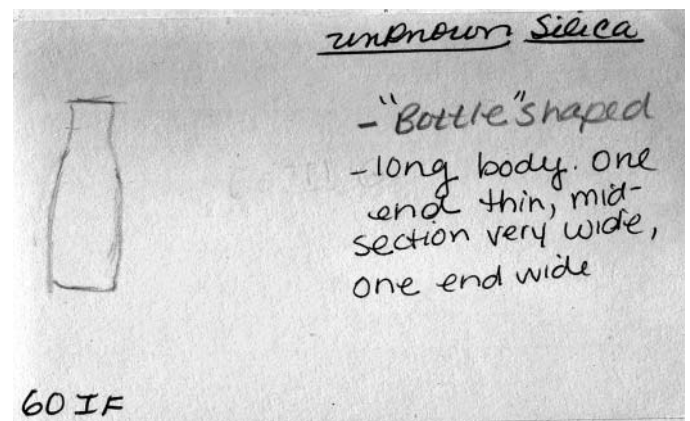 unknown Silica
- "Bottle" shaped
- long body. One
end thin, mid-
section very wide,
one end wide
60 IF